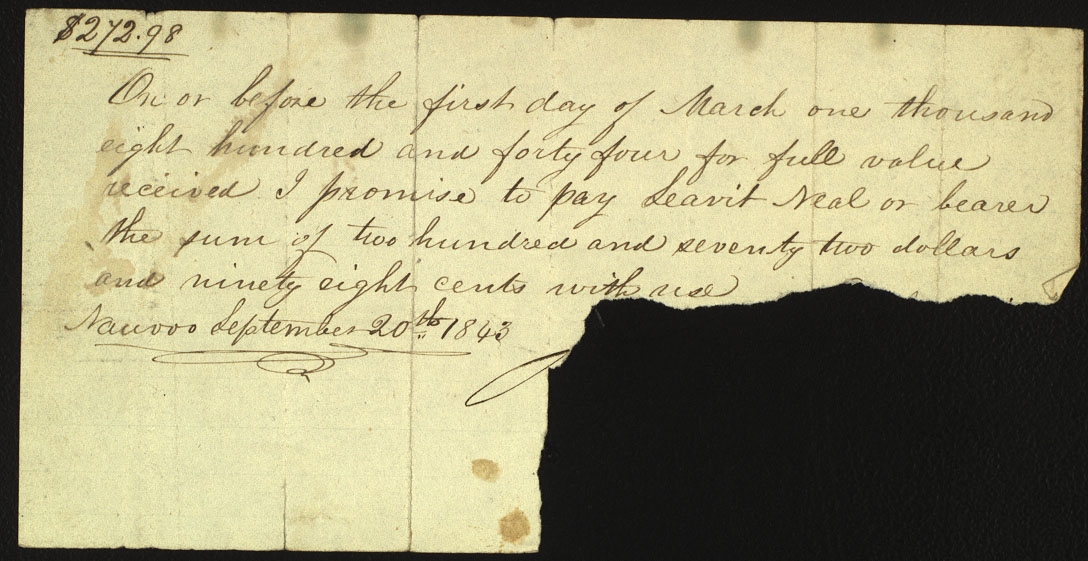 $272.98
On or before the first day of March one thousand
eight hundred and forty four for full value
received I promise to pay Leavit Neal or bearer
the sum of two hundred and seventy two dollars
and ninety eight cents with use
Nauvoo September 20th 1843